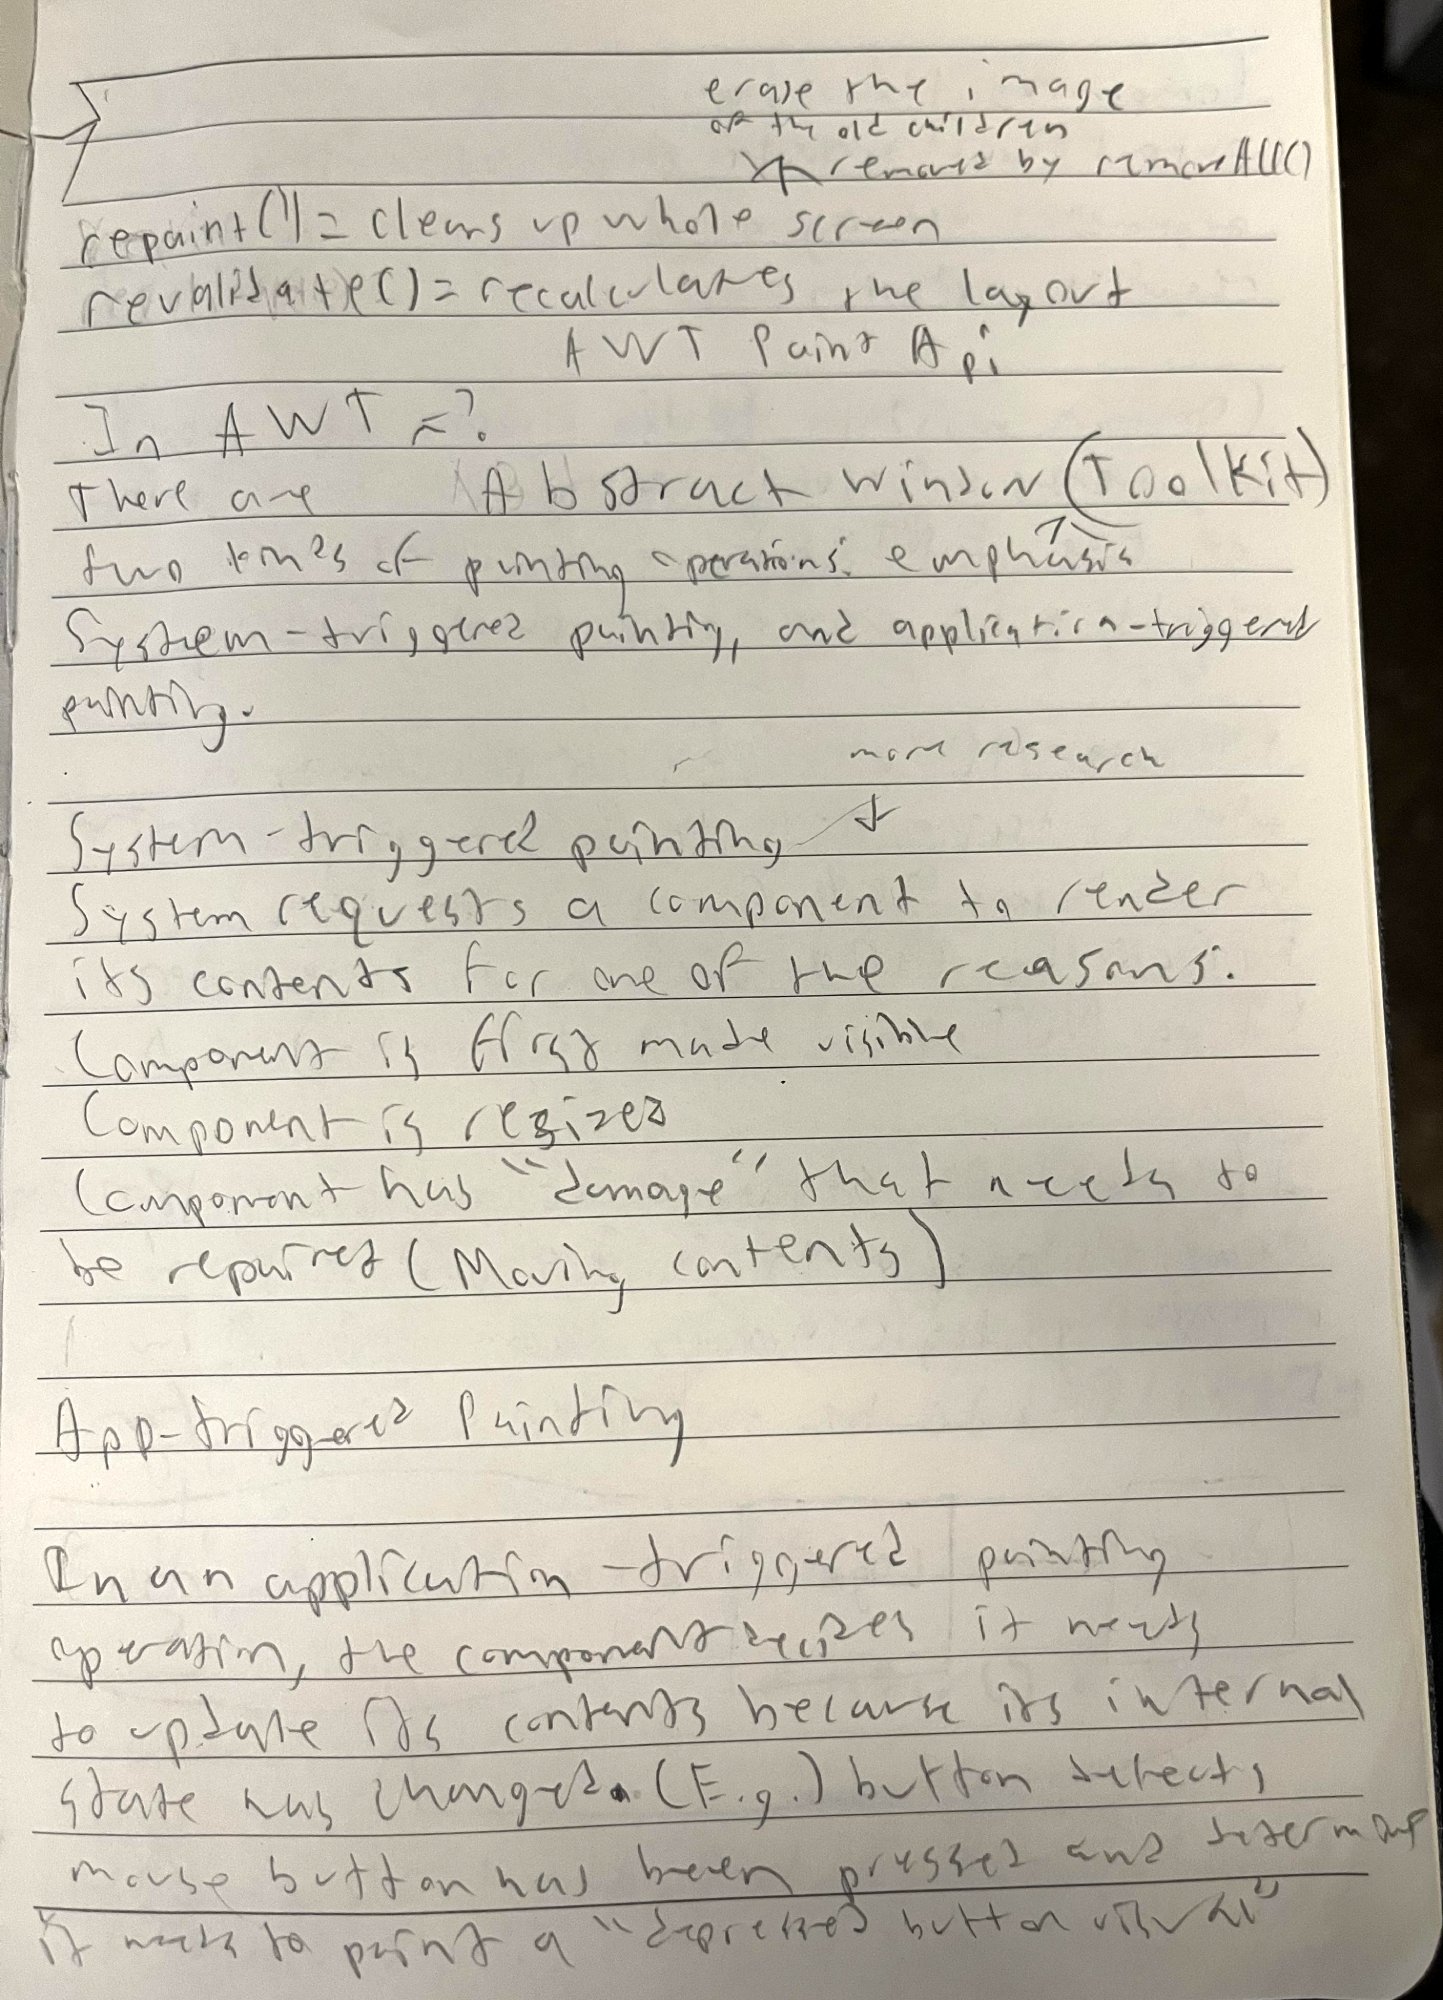 erase the image
of the old children
removed by removeAll()
repaint() = cleans up whole screen
revalidate() = recalculates the layout
AWT Paint Api
In AWT =?
There are Abstract Window (Toolkit)
two kinds of painting operations: emphasis
System-triggered painting, and application-triggered
painting.
more research
System-triggered painting
System requests a component to render
its contents for one of the reasons:
Component is first made visible
Component is resized
Component has "damage" that needs to
be repaired (Moving contents)
App-triggered Painting
In an application-triggered painting
operation, the component decides it needs
to update its contents because its internal
state has changed. (E.g.) button detects
mouse button has been pressed and determine
it needs to paint a "depressed button visual"